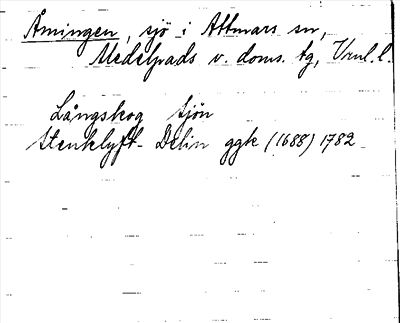 Åmingen, sjö i Attmars sn,
Medelpads v. doms. tg, Vnl. l.
Långskog sjön
Stenklyft- Delin ggk (1688) 1782